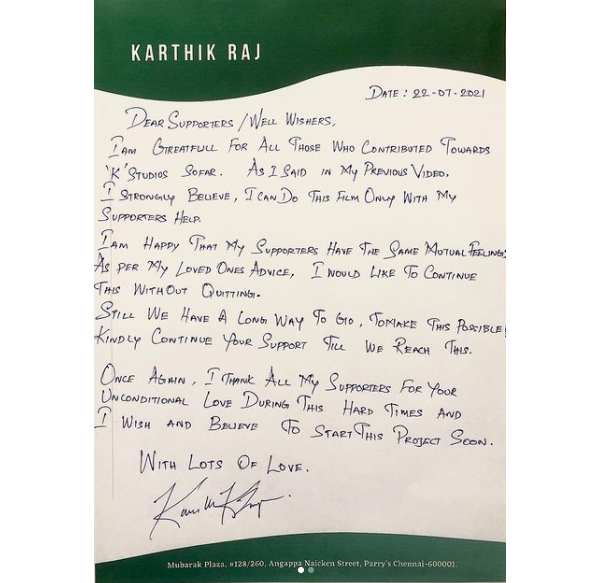 KARTHIK RAJ
DATE : 22-07-2021
DEAR SUPPORTERS / WELL WISHERS,
I AM GREATFULL FOR ALL THOSE WHO CONTRIBUTED TOWARDS
'K' STUDIOS SOFAR. AS I SAID IN MY PREVIOUS VIDEO.
I STRONGLY BELIEVE, I CAN DO THIS FILM ONLY WITH MY
SUPPORTERS HELP.
I AM HAPPY THAT MY SUPPORTERS HAVE THE SAME MUTUAL FEELINGS
AS PER MY LOVED ONES ADVICE, I WOULD LIKE TO CONTINUE
THIS WITHOUT QUITTING.
STILL WE HAVE A LONG WAY TO GO, TO MAKE THIS POSCIBLE
KINDLY CONTINUE YOUR SUPPORT TILL WE REACH THIS.
ONCE AGAIN, I THANK ALL MY SUPPORTERS FOR YOUR
UNCONDITIONAL LOVE DURING THIS HARD TIMES AND
I WISH AND BELIEVE TO START THIS PROJECT SOON.
WITH LOTS OF LOVE.
Mubarak Plaza, #128/260, Angappa Naicken Street, Parry's Chennai-600001.